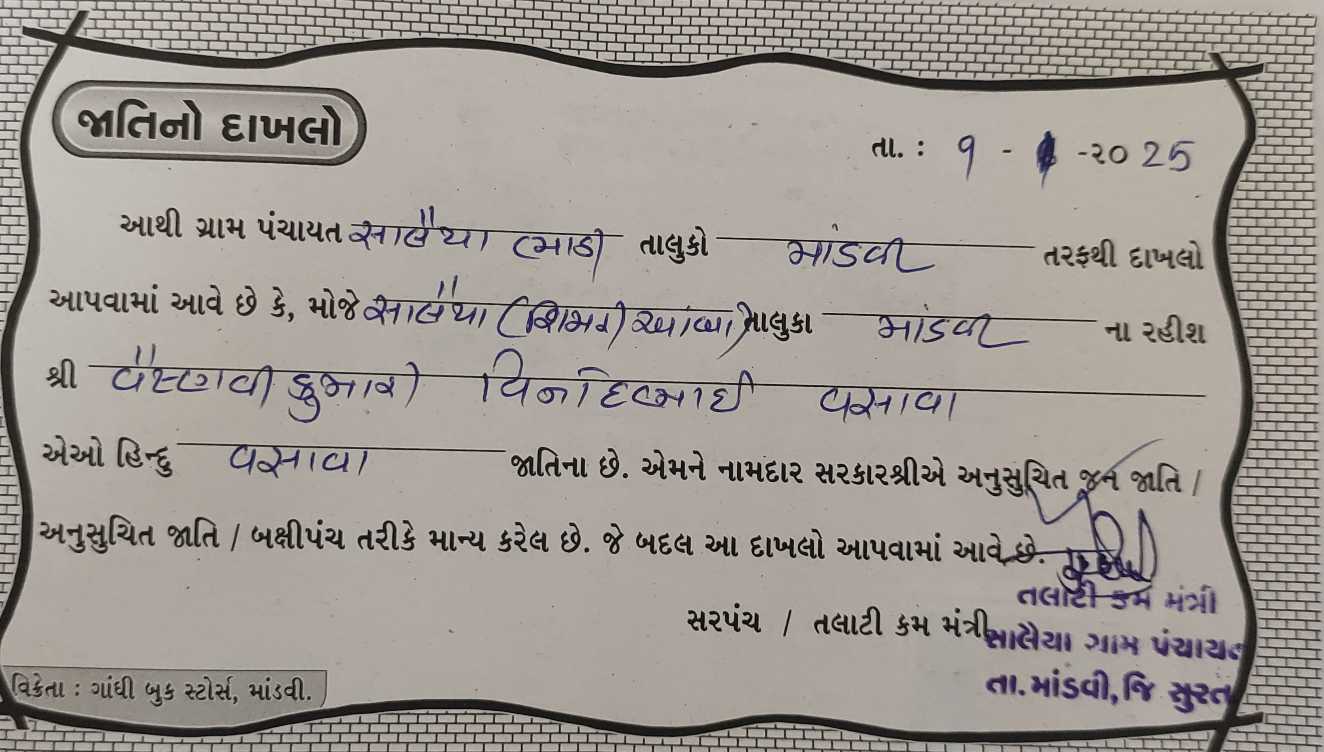 જાતિનો દાખલો
તા. : ૧ - -૨૦ 25
આથી ગ્રામ પંચાયત સાલૈયા તાલુકો માંડવી તરફથી દાખલો
આપવામાં આવે છે કે, મોજે સાલૈયા તાલુકા માંડવી ના રહીશ
શ્રી વૈષ્ણવી કુમારી વિનોદભાઈ વસાવા
એઓ હિન્દુ વસાવા જાતિના છે. એમને નામદાર સરકારશ્રીએ અનુસુચિત જન જાતિ /
અનુસુચિત જાતિ / બક્ષીપંચ તરીકે માન્ય કરેલ છે. જે બદલ આ દાખલો આપવામાં આવે છે.
તલાટી કમ મંત્રી
સરપંચ / તલાટી કમ મંત્રી સાલૈયા ગ્રામ પંચાયત
તા. માંડવી, જિ સુરત
વિક્રેતા : ગાંધી બુક સ્ટોર્સ, માંડવી.